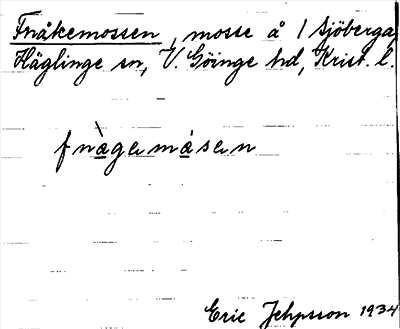 Fnåkemossen, mosse å 1 Sjöberga,
Häglinge sn, V. Göinge hd, Krist. l.
fnàgemásen
Eric Jehpsson 1934